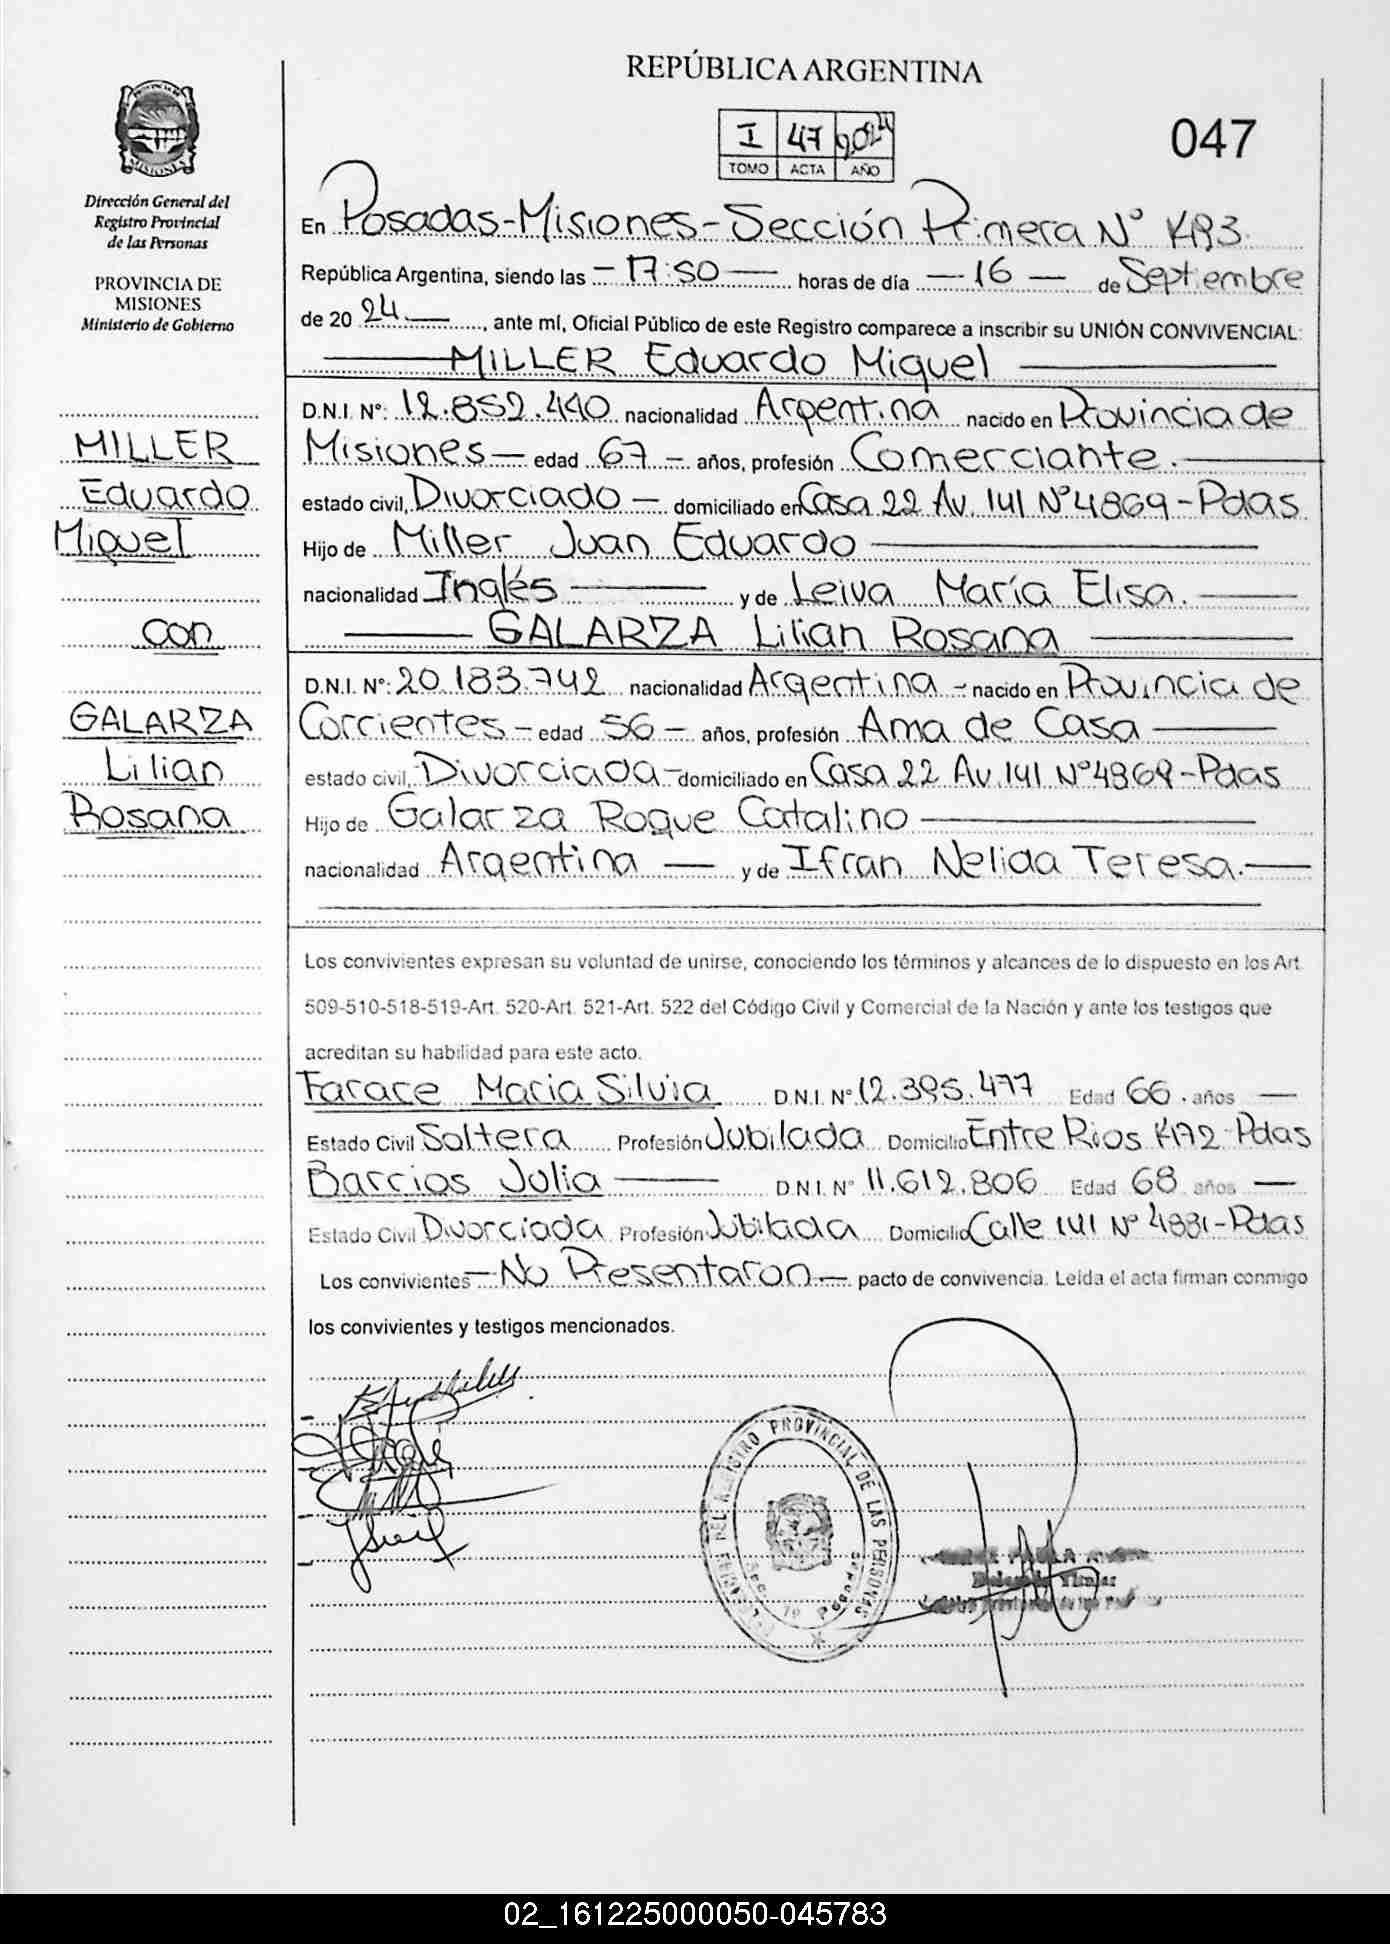 REPÚBLICA ARGENTINA
I 47 2024
TOMO ACTA AÑO
047
PROVINCIA DE
MISIONES
Dirección General del
Registro Provincial
de las Personas
PROVINCIA DE
MISIONES
Ministerio de Gobierno
MILLER
Eduardo
Miguel
con
GALARZA
Lilian
Rosana
En Posadas-Misiones-Sección Primera N°
República Argentina, siendo las - 17:50 - horas de día - 16 - de Septiembre
de 20 24. -, ante mí, Oficial Público de este Registro comparece a inscribir su UNIÓN CONVIVENCIAL:
MILLER Eduardo Miguel
D.N.I. N°: 12.852.440 nacionalidad Argentina nacido en Provincia de
Misiones - edad 67 - años, profesión Comerciante.
estado civil, Divorciado - domiciliado en Casa 22 Av. 141 N° 4869 - Pdas
Hijo de Miller Juan Eduardo
nacionalidad Inglés y de Leiva María Elisa.
GALARZA Lilian Rosana
D.N.I. N°: 20.183.742 nacionalidad Argentina - nacido en Provincia de
Corrientes - edad 56 - años, profesión Ama de Casa
estado civil, Divorciada - domiciliado en Casa 22 Av. 141 N° 4869 - Pdas
Hijo de Galarza Roque Catalino
nacionalidad Argentina - y de Ifran Nelida Teresa.
Los convivientes expresan su voluntad de unirse, conociendo los términos y alcances de lo dispuesto en los Art
509-510-518-519-Art. 520-Art. 521-Art. 522 del Código Civil y Comercial de la Nación y ante los testigos que
acreditan su habilidad para este acto.
Farace Maria Silvia D.N.I. N° 12.395.477 Edad 66. años
Estado Civil Soltera Profesión Jubilada Domicilio Entre Rios Pdas
Barrios Julia D.N.I. N° 11.612.806 Edad 68 años
Estado Civil Divorciada Profesión Jubilada Domicilio Calle 141 N° 4881-Pdas
Los convivientes - No Presentaron - pacto de convivencia. Leída el acta firman conmigo
los convivientes y testigos mencionados.
REGISTRO PROVINCIAL DE LAS PERSONAS
02_161225000050-045783